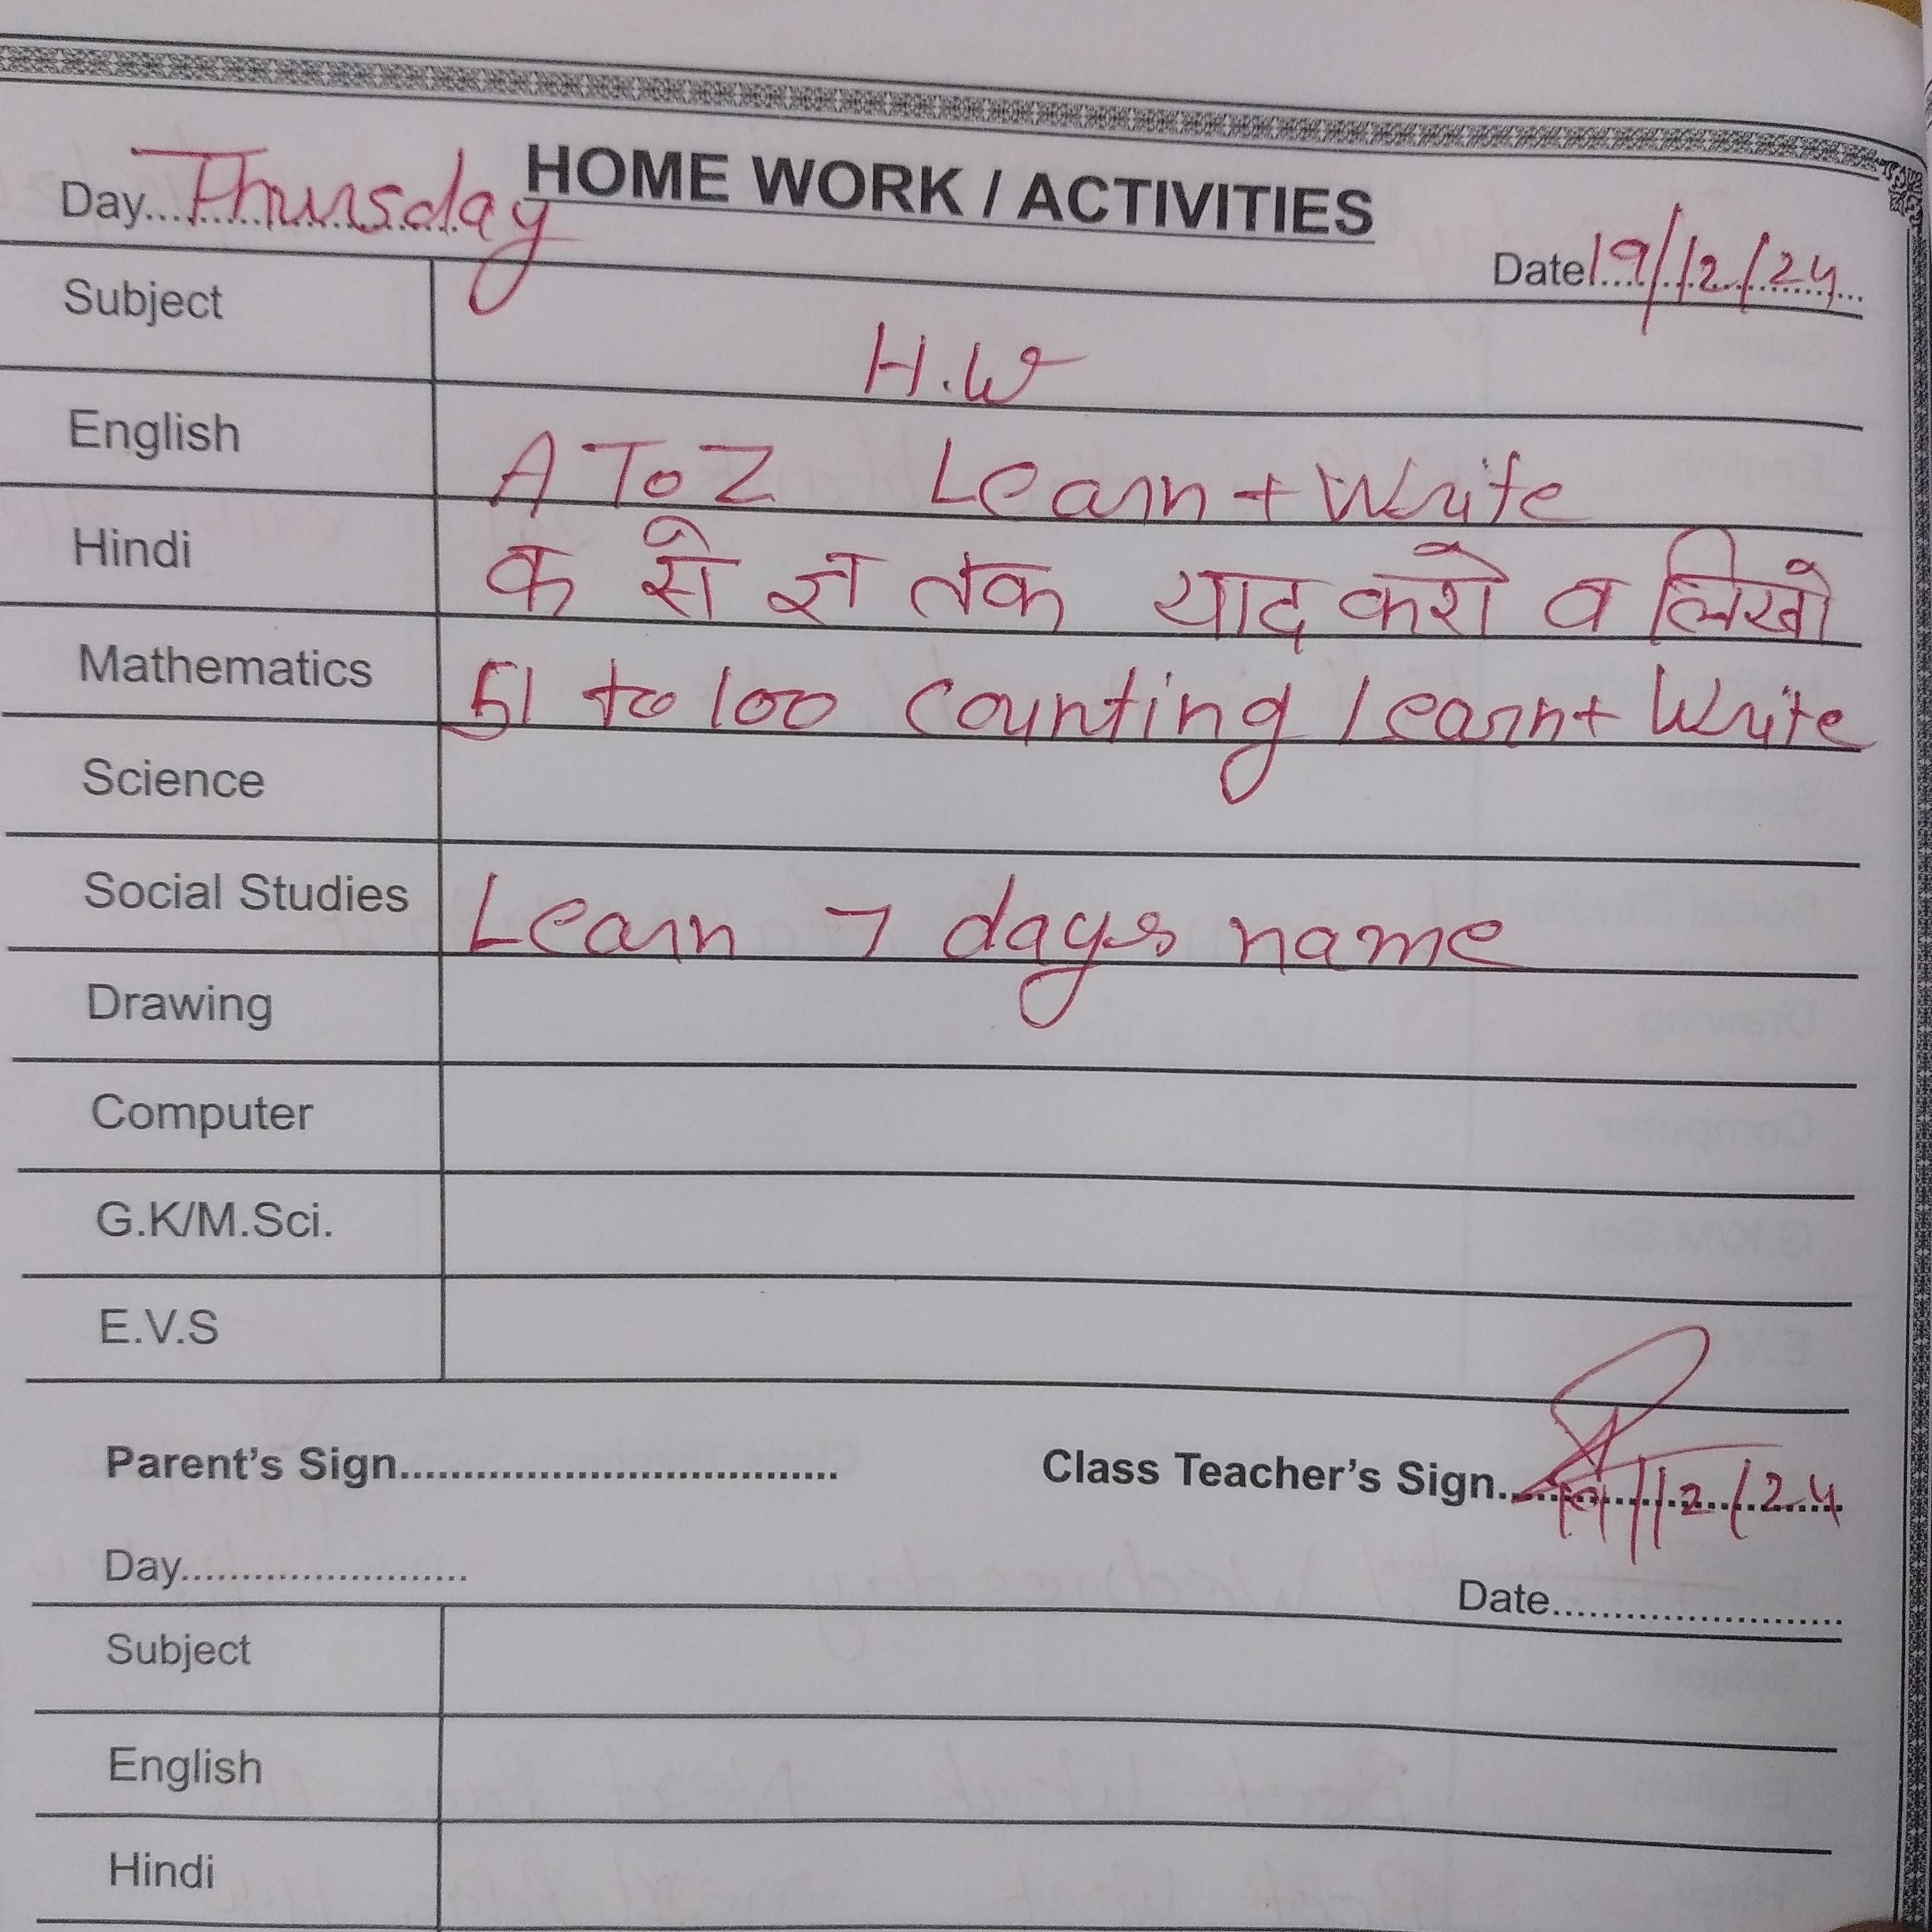 HOME WORK / ACTIVITIES
Day....Thursday
Date 19/12/24
Subject
H.W
English A To Z Learn + Write
Hindi क से ज्ञ तक याद करो व लिखो
Mathematics 51 to 100 Counting learn + Write
Science
Social Studies Learn 7 days name
Drawing
Computer
G.K/M.Sci.
E.V.S
Parent's Sign................................... Class Teacher's Sign. 19/12/24
Day........................
Date........................
Subject
English
Hindi